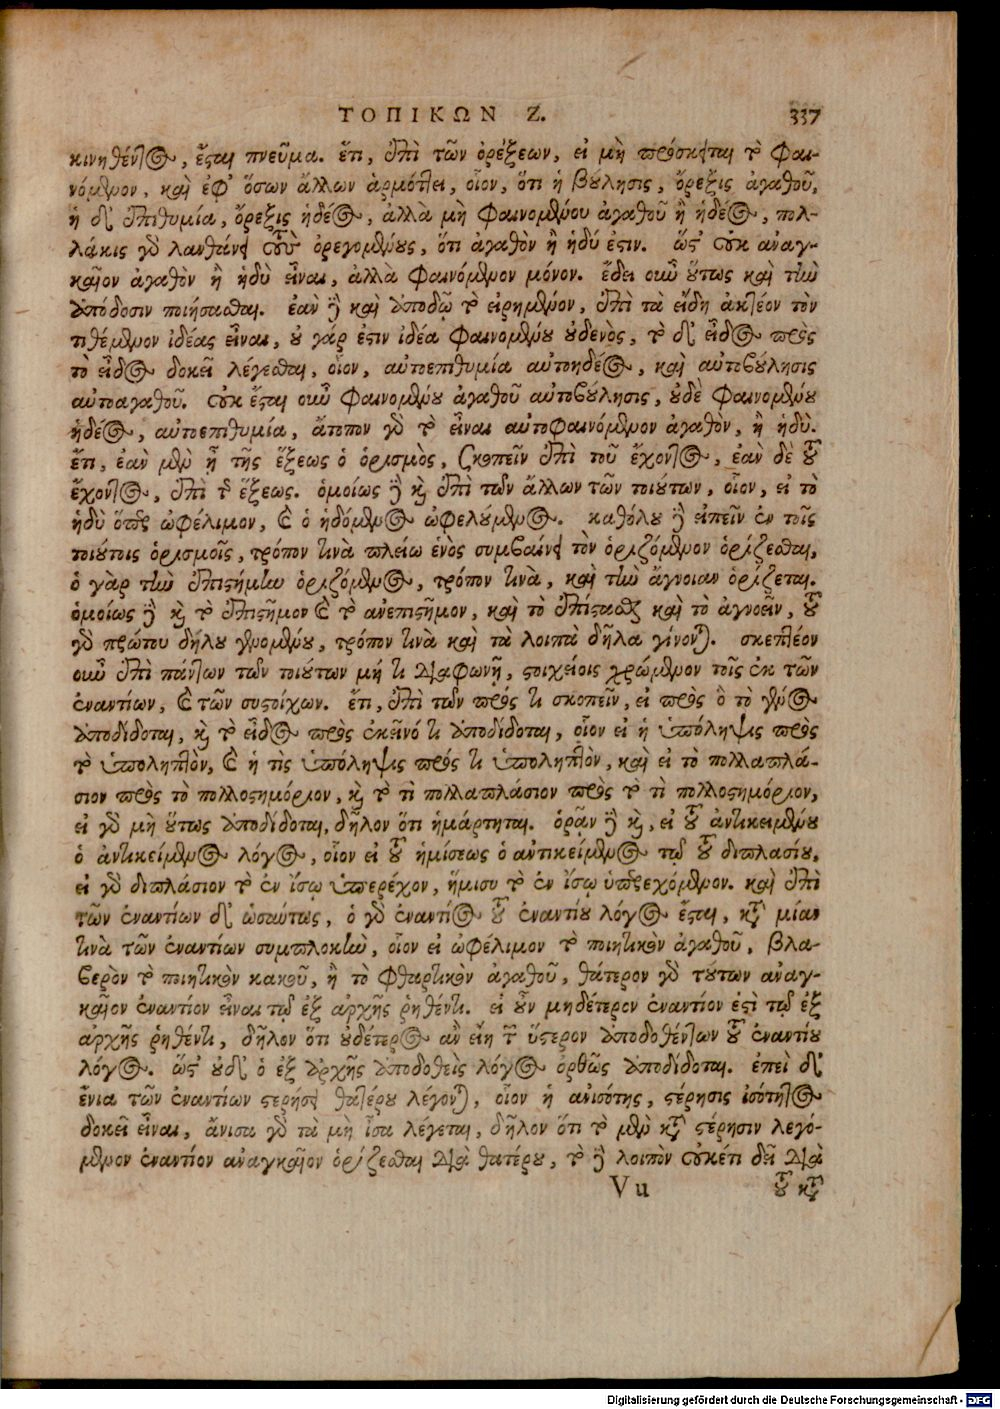 ΤΟΠΙΚΩΝ Ζ. 337
κινηθέντος, ἔσται πνεῦμα. ἔτι, ἐπὶ τῶν ὀρέξεων, εἰ μὴ πρόσκειται τὸ φαι-
νόμενον, καὶ ἐφ' ὅσων ἄλλων ἁρμόττει, οἷον, ὅτι ἡ βούλησις, ὄρεξις ἀγαθοῦ,
ἡ δ' ἐπιθυμία, ὄρεξις ἡδέος, ἀλλὰ μὴ φαινομένου ἀγαθοῦ ἢ ἡδέος, πολ-
λάκις γὸ λανθάνει τοὺς ὀρεγομένους, ὅτι ἀγαθὸν ἢ ἡδύ ἐστιν. ὥστ' οὐκ ἀναγ-
καῖον ἀγαθὸν ἢ ἡδὺ εἶναι, ἀλλὰ φαινόμενον μόνον. ἔδει οὖν οὕτως καὶ τὴν
ἀπόδοσιν ποιήσασθαι. ἐὰν δὲ καὶ ἀποδῷ τὸ εἰρημένον, ἐπὶ τὰ εἴδη ἀκτέον τὸν
τιθέμενον ἰδέας εἶναι, οὐ γάρ ἐστιν ἰδέα φαινομένου οὐδενὸς, τὸ δ' εἶδος πρὸς
τὸ εἶδος δοκεῖ λέγεσθαι, οἷον, αὐτοεπιθυμία αὐτοηδέος, καὶ αὐτοβούλησις
αὐτοαγαθοῦ. οὐκ ἔσται οὖν φαινομένου ἀγαθοῦ αὐτοβούλησις, οὐδὲ φαινομένου
ἡδέος, αὐτοεπιθυμία, ἄτοπον γὰρ τὸ εἶναι αὐτοφαινόμενον ἀγαθὸν, ἢ ἡδύ.
ἔτι, ἐὰν μὲν ᾖ τῆς ἕξεως ὁ ὁρισμὸς, σκοπεῖν ἐπὶ τοῦ ἔχοντος, ἐὰν δὲ τοῦ
ἔχοντος, ἐπὶ τῆς ἕξεως. ὁμοίως δὲ καὶ ἐπὶ τῶν ἄλλων τῶν τοιούτων, οἷον, εἰ τὸ
ἡδὺ ὅπερ ὠφέλιμον, καὶ ὁ ἡδόμενος ὠφελούμενος. καθόλου δὲ εἰπεῖν ἐν τοῖς
τοιούτοις ὁρισμοῖς, τρόπον τινὰ πλείω ἑνὸς συμβαίνει τὸν ὁριζόμενον ὁρίζεσθαι,
ὁ γὰρ τὴν ἐπιστήμην ὁριζόμενος, τρόπον τινὰ, καὶ τὴν ἄγνοιαν ὁρίζεται.
ὁμοίως δὲ καὶ τὸ ἐπιστῆμον καὶ τὸ ἀνεπιστῆμον, καὶ τὸ ἐπίστασθαι καὶ τὸ ἀγνοεῖν, τοῦ
γὰρ πρώτου δήλου γενομένου, τρόπον τινὰ καὶ τὰ λοιπὰ δῆλα γίνονται. σκεπτέον
οὖν ἐπὶ πάντων τῶν τοιούτων μή τι διαφωνῇ, στοιχείοις χρώμενον τοῖς ἐκ τῶν
ἐναντίων, καὶ τῶν συστοίχων. ἔτι, ἐπὶ τῶν πρός τι σκοπεῖν, εἰ πρὸς ὃ τὸ γένος
ἀποδίδοται, καὶ τὸ εἶδος πρὸς ἐκεῖνό τι ἀποδίδοται, οἷον εἰ ἡ ὑπόληψις πρὸς
τὸ ὑποληπτὸν, καὶ ἡ τὶς ὑπόληψις πρός τι ὑποληπτὸν, καὶ εἰ τὸ πολλαπλά-
σιον πρὸς τὸ πολλοστημόριον, καὶ τὸ τὶ πολλαπλάσιον πρὸς τὸ τὶ πολλοστημόριον,
εἰ γὰρ μὴ οὕτως ἀποδίδοται, δῆλον ὅτι ἡμάρτηται. ὁρᾶν δὲ καὶ, εἰ τοῦ ἀντικειμένου
ὁ ἀντικείμενος λόγος, οἷον εἰ τοῦ ἡμίσεως ὁ ἀντικείμενος τῷ τοῦ διπλασίου,
εἰ γὰρ διπλάσιον τὸ ἐν ἴσῳ ὑπερέχον, ἥμισυ τὸ ἐν ἴσῳ ὑπερεχόμενον. καὶ ἐπὶ
τῶν ἐναντίων δ' ὡσαύτως, ὁ γὰρ ἐναντίος τοῦ ἐναντίου λόγος ἔσται, κατὰ μίαν
τινὰ τῶν ἐναντίων συμπλοκὴν, οἷον εἰ ὠφέλιμον τὸ ποιητικὸν ἀγαθοῦ, βλα-
βερὸν τὸ ποιητικὸν κακοῦ, ἢ τὸ φθαρτικὸν ἀγαθοῦ, θάτερον γὰρ τούτων ἀναγ-
καῖον ἐναντίον εἶναι τῷ ἐξ ἀρχῆς ῥηθέντι. εἰ οὖν μηδέτερον ἐναντίον ἐστὶ τῷ ἐξ
ἀρχῆς ῥηθέντι, δῆλον ὅτι οὐδέτερος ἂν εἴη τῶν ὕστερον ἀποδοθέντων τοῦ ἐναντίου
λόγος. ὥστ' οὐδ' ὁ ἐξ ἀρχῆς ἀποδοθεὶς λόγος ὀρθῶς ἀποδίδοται. ἐπεὶ δ'
ἔνια τῶν ἐναντίων στερήσει θατέρου λέγονται, οἷον ἡ ἀνισότης, στέρησις ἰσότητος
δοκεῖ εἶναι, ἄνισα γὰρ τὰ μὴ ἴσα λέγεται, δῆλον ὅτι τὸ μὲν κατὰ στέρησιν λεγό-
μενον ἐναντίον ἀναγκαῖον ὁρίζεσθαι διὰ θατέρου, τὸ δὲ λοιπὸν οὐκέτι δεῖ διὰ
Vu τοῦ κατὰ
Digitalisierung gefördert durch die Deutsche Forschungsgemeinschaft - DFG